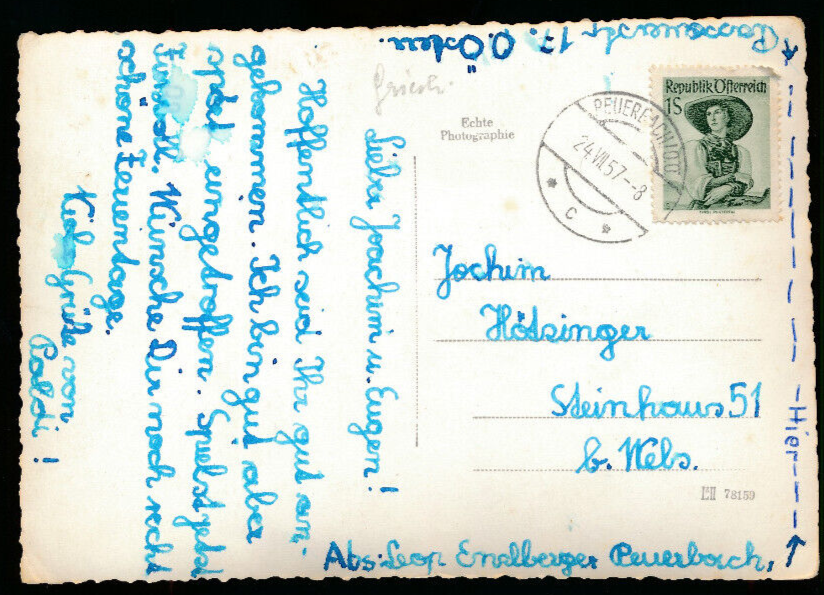 Lieber Joachim u. Eugen!
Hoffentlich seid Ihr gut an-
gekommen. Ich bin gut aber
spät eingetroffen. Spielst jetzt
Wünsche Dir noch recht
schöne Feuentage.
Viele Grüße von
Poldi!
Echte
Photographie
Republik Österreich
1S
PEUERBACH
24.VII.57--8
C
Jochim
Hötzinger
Steinhaus 51
b. Wels.
78159
Abs: Leop Enzlberger Peuerbach,
--Hier--
17. O.Östere.